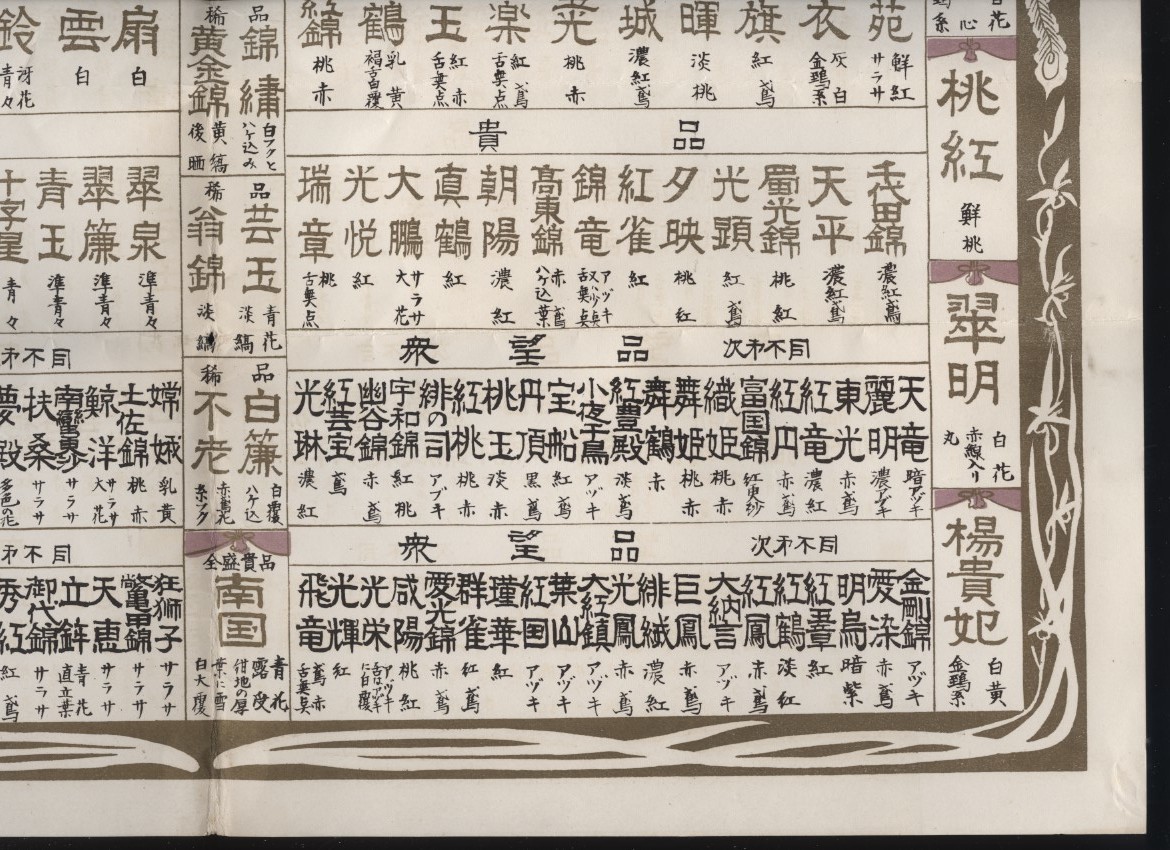 白花
心
桃紅
鮮桃
翠明
白花
赤線入り
丸
楊貴妃
白黄
金鵄系
苑
鮮紅
サラサ
衣
灰白
金鵄系
旗
紅鳶
暉
淡桃
城
濃紅鳶
光
桃赤
楽
紅鳶
舌無点
玉
紅赤
舌無点
鶴
乳黄
錦
桃赤
貴品
千代田錦
濃紅鳶
天平
濃紅鳶
蜀光錦
桃紅
光顕
紅鳶
夕映
桃紅
紅雀
紅
錦竜
アヅキ
高東錦
赤鳶
ハケ込葉
朝陽
濃紅
真鶴
紅
大鵬
サラサ
大花
光悦
紅
瑞章
桃
舌無点
衆望品 次第不同
天竜
暗アヅキ
麗明
濃アヅキ
東光
赤鳶
紅竜
濃紅
紅円
赤鳶
富国錦
紅更紗
織姫
桃赤
舞姫
桃赤
舞鶴
赤
紅豊殿
淡鳶
小夜千鳥
アヅキ
宝船
紅鳶
丹頂
黒鳶
桃玉
淡赤
紅桃
桃赤
緋の司
アヅキ
宇和錦
紅桃
幽谷錦
赤鳶
紅芸宝
鳶
光琳
濃紅
衆望品 次第不同
金剛錦
アヅキ
愛染
赤鳶
明烏
暗紫
紅羣
紅
紅鶴
淡紅
紅鳳
赤鳶
大納言
アヅキ
巨鳳
赤鳶
緋縅
濃紅
光鳳
赤鳶
大紅鎮
アヅキ
葉山
アヅキ
紅国
アヅキ
瑾華
紅
群雀
紅鳶
愛光錦
赤鳶
咸陽
桃紅
光栄
アヅキ
光輝
紅
飛竜
鳶赤
舌無点
品
錦繍
白フクと
ハケ込み
稀
黄金錦
黄縞
後晒
品
芸玉
青花
淡縞
稀
翁錦
淡縞
品
白簾
白覆
ハケ込
稀
不老
赤鳶花
糸フク
全盛貴品
南国
青花
露受
紺地の厚
葉に雪
白大覆
扇
白
雲
白
鈴
冴花
青々
翠泉
準青々
翠簾
準青々
青玉
準青々
十字星
青々
次第不同
嫦娥
乳黄
土佐錦
桃赤
鯨洋
サラサ
大花
南蛮夢
サラサ
扶桑
サラサ
夢殿
多色の花
次第不同
狂獅子
サラサ
鷲尾錦
サラサ
天恵
サラサ
立鉾
青花
直立葉
御代錦
サラサ
秀紅
紅鳶